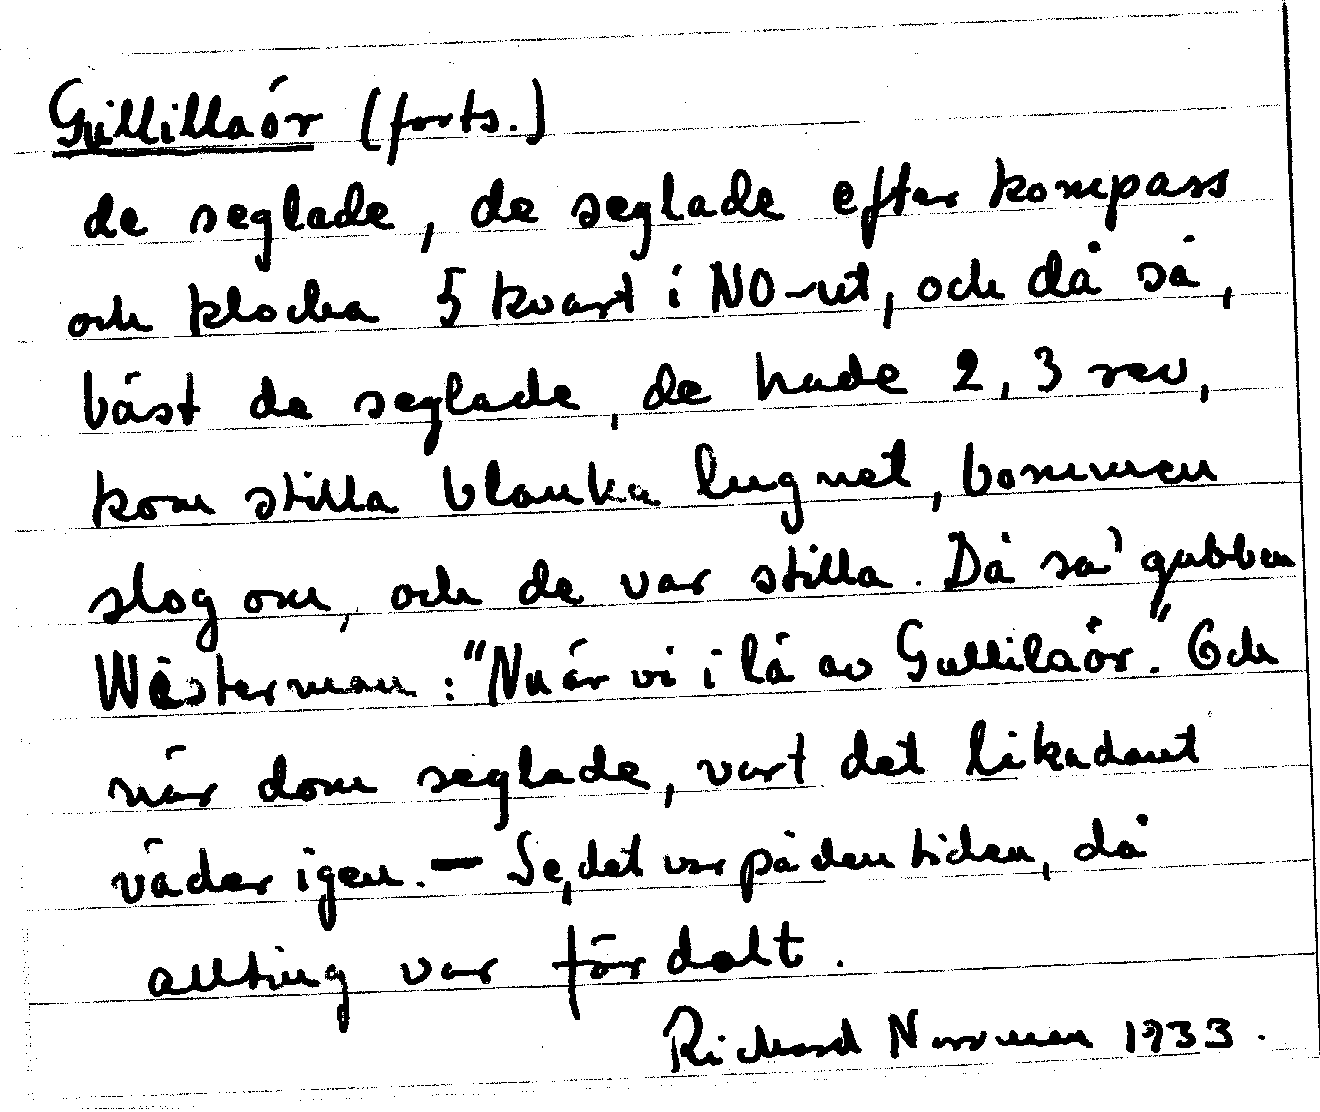 Gullillaör (forts.)
de seglade, de seglade efter kompass
och klocka 5 kvart i NO-ret, och då så,
bäst de seglade, de hade 2, 3 rev,
kom stilla blanka lugnet, bommen
slog om, och de var stilla. Då sa' gubben
Wästerman: "Nu är vi i lä av Gullilaör." Och
när dom seglade, vart det likadant
väder igen. — Se, det var på den tiden, då
allting var fördolt.
Richard Norrman 1933.